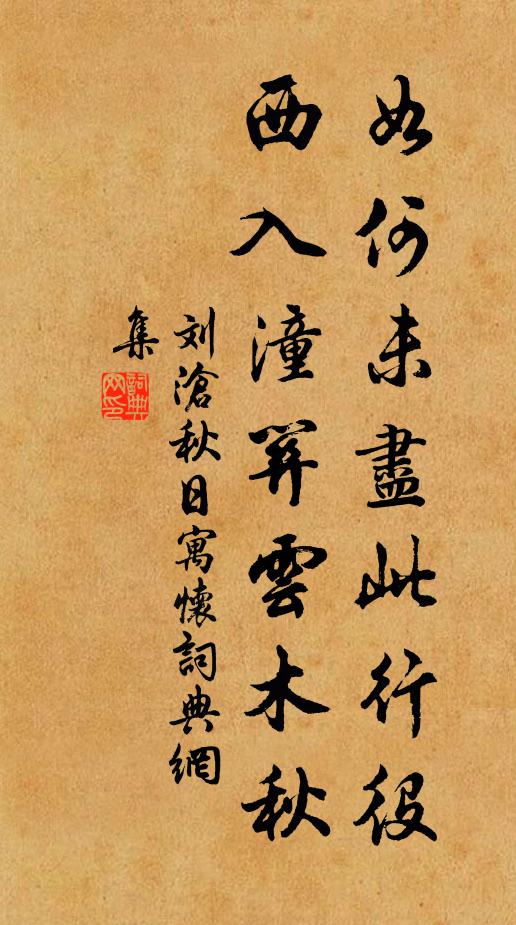 如何未盡此行役
西入潼關雲木秋
刘滄秋日寓懷詞典網
集
詞典
网印